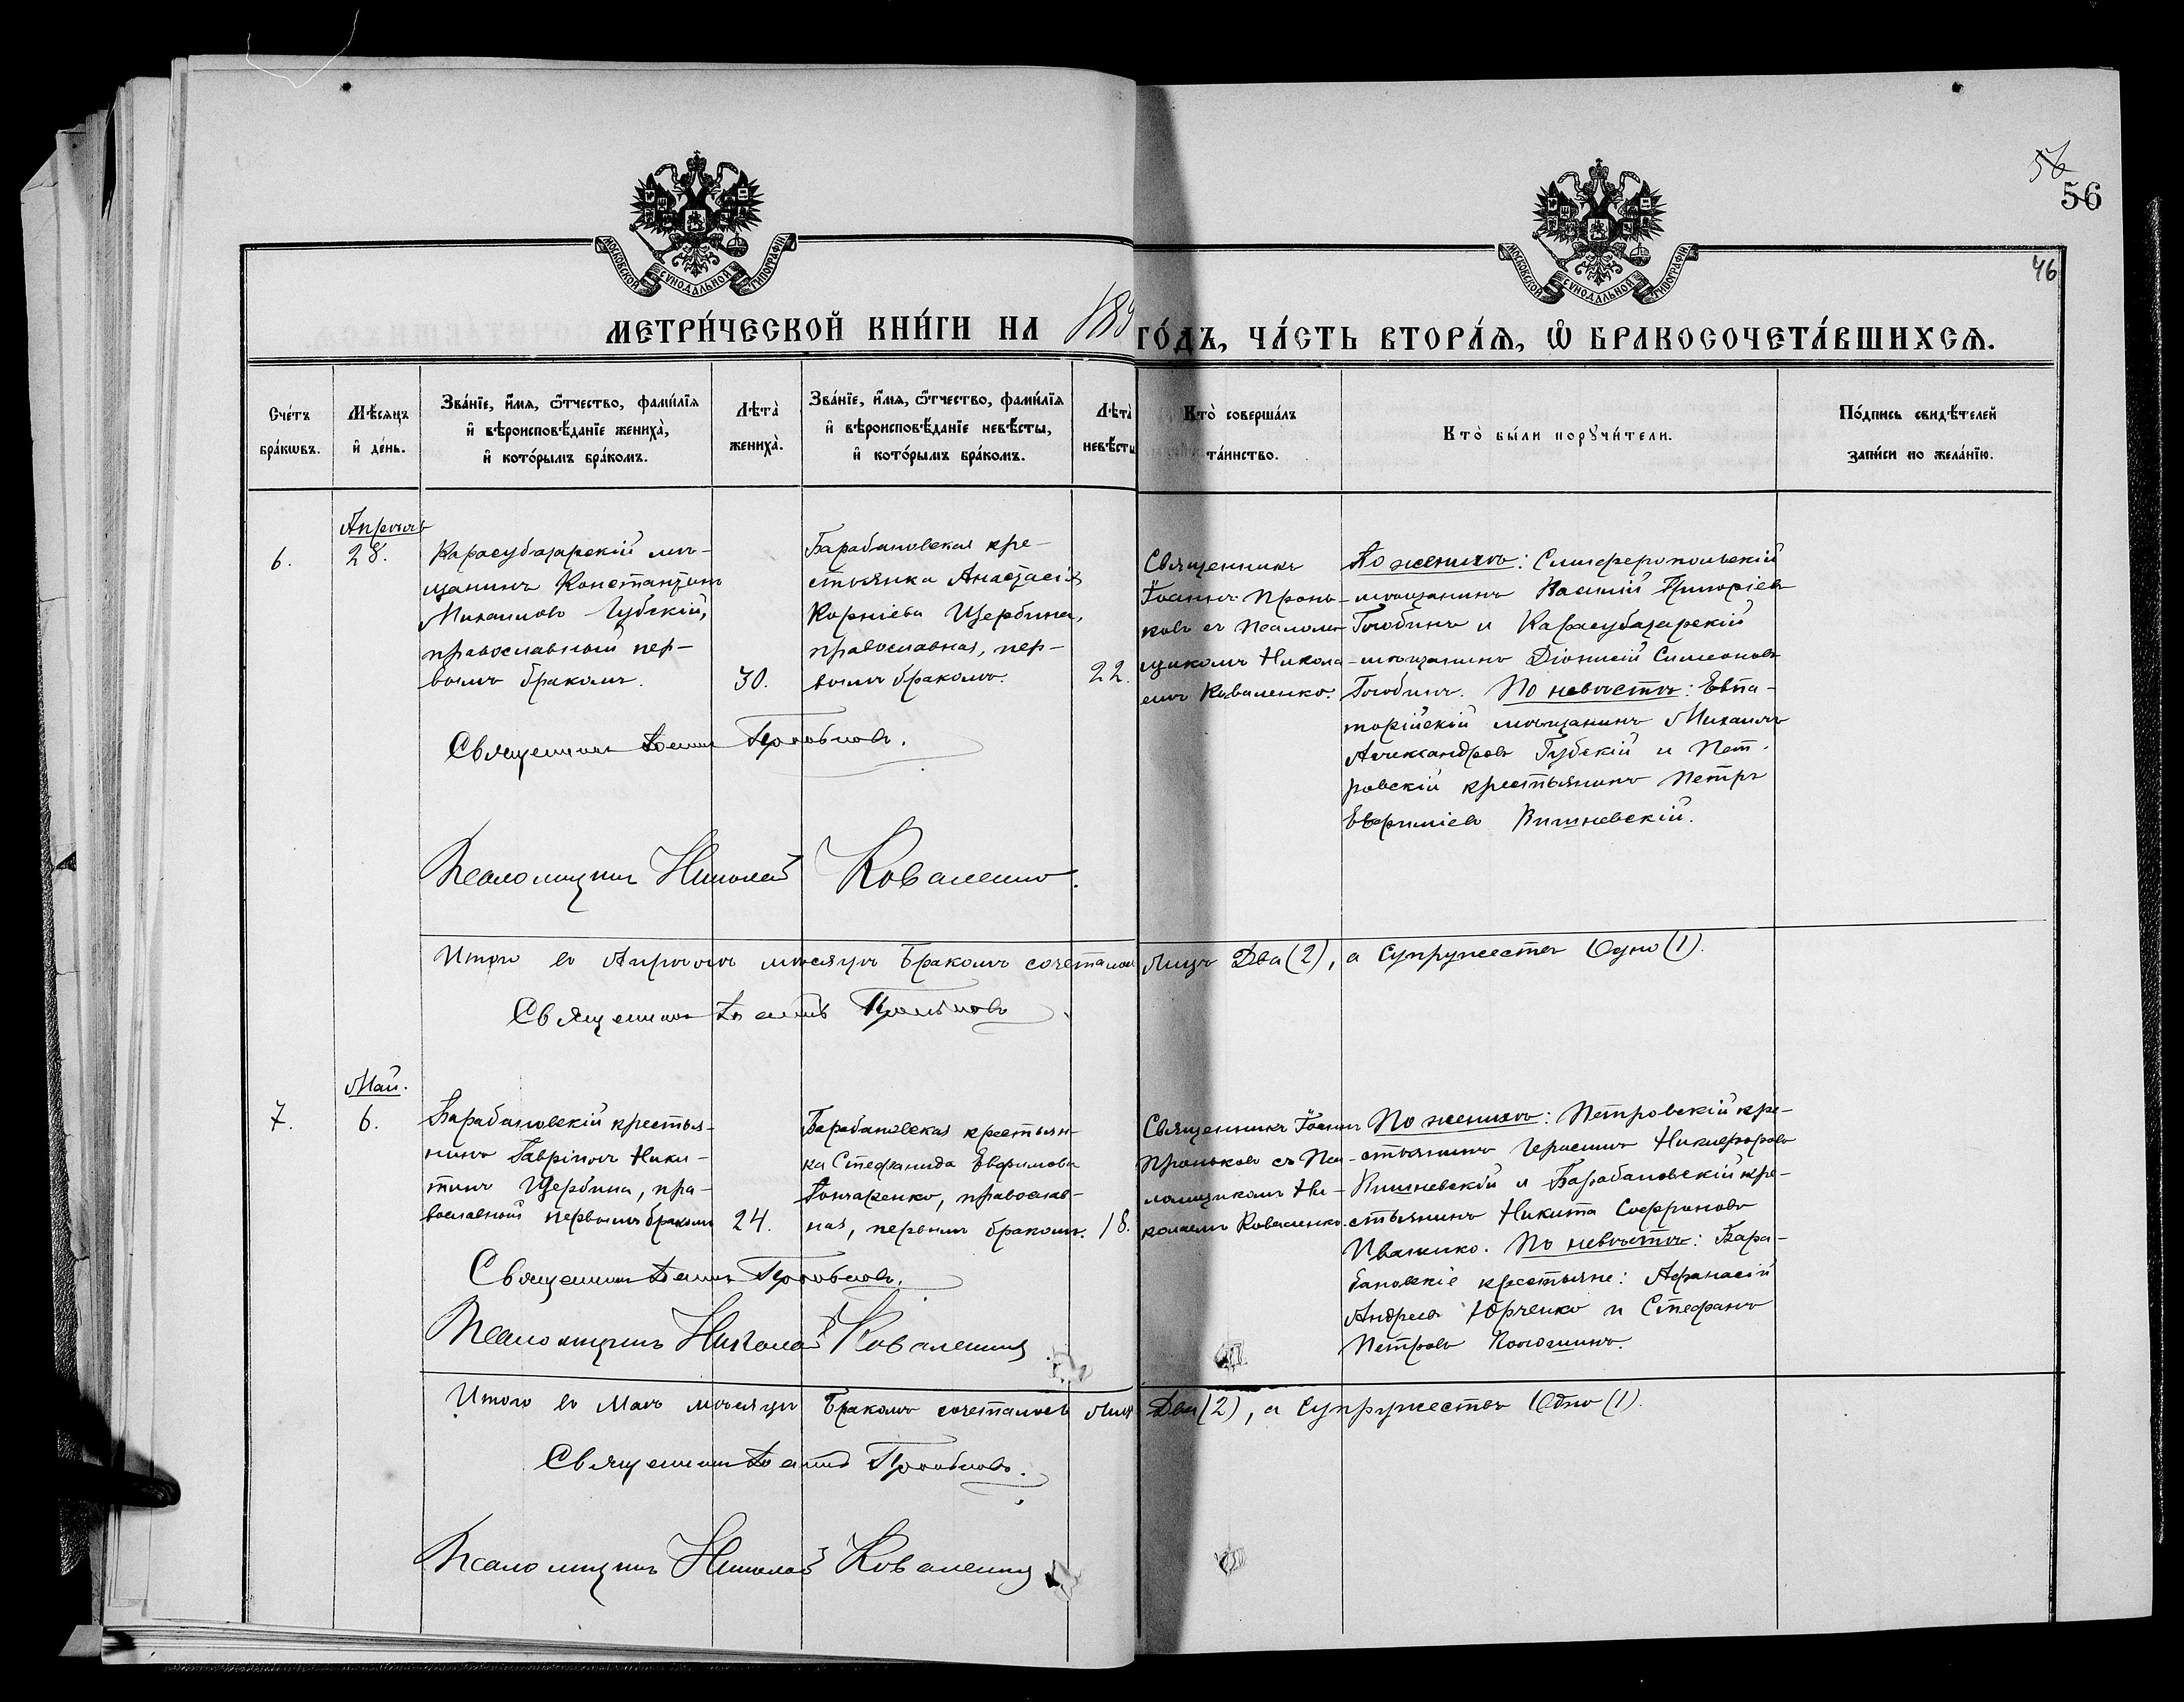 56
56
46
МОСКОВСКОЙ СѴНОДАЛЬНОЙ ТИПОГРАФІИ.
МОСКОВСКОЙ СѴНОДАЛЬНОЙ ТИПОГРАФІИ.
МЕТРИ́ЧЕСКОЙ КНИ́ГИ НА 189
ГО́ДЪ, ЧА́СТЬ ВТОРА́Я, Ѡ БРАКОСОЧЕТА́ВШИХСЯ.
Сче́тъ бра́кѡвъ.
Мѣ́сяцъ и де́нь.
Зва́нїе, и́мя, ѻ́тчество, фами́лїя и вѣроисповѣ́данїе жениха̀, и кото́рымъ бра́комъ.
Лѣта̀ жениха̀.
Зва́нїе, и́мя, ѻ́тчество, фами́лїя и вѣроисповѣ́данїе невѣ́сты, и кото́рымъ бра́комъ.
Лѣта̀ невѣ́сты
Кто̀ соверша́лъ та́инство.
Кто̀ бы́ли порꙋчи́тели.
По́дпись свидѣ́телей за́писи по жела́нїю.
6.
Апрѣль
28.
Карасубазарскій мѣ-
щанинъ Константинъ
Михаиловъ Губскій,
православный пер-
вымъ бракомъ.
30.
Барабановская кре-
стьянка Анастасія
Корніева Щербина,
православная, пер-
вымъ бракомъ.
22.
Священникъ
Іоаннъ Пронь-
ковъ съ Псаломъ-
щикомъ Никола-
емъ Коваленко.
По женихѣ: Симферопольскій
мѣщанинъ Василій Григоріевъ
и Карасубазарскій
мѣщанинъ Діонисій Симеоновъ
По невѣстѣ: Евпа-
торійскій мѣщанинъ Михаилъ
Александровъ Губскій и Пет-
ровскій крестьянинъ Петръ
Евфиміевъ Вишневскій.
Священникъ Іоаннъ Проньковъ.
Псаломщикъ Николай Коваленко.
Итого въ Апрѣлѣ мѣсяцѣ бракомъ сочеталось лицъ Два (2), а супружествъ Одно (1).
Священникъ Іоаннъ Проньковъ
7.
Май.
6.
Барабановскій крестья-
нинъ Гавріилъ Ники-
тинъ Щербина, пра-
вославный первымъ бракомъ
24.
Барабановская крестьян-
ка Стефанида Евфимова
Гончаренко, православ-
ная, первымъ бракомъ.
18.
Священникъ Іоаннъ
Проньковъ съ Пса-
ломщикомъ Ни-
колаемъ Коваленко.
По женихѣ: Петровскій кре-
стьянинъ Герасимъ Никифоровъ
Вишневскій и Барабановскій кре-
стьянинъ Никита Софроновъ
Иваненко. По невѣстѣ: Бара-
бановскіе крестьяне: Афанасій
Андреевъ Юрченко и Стефанъ
Петровъ
Священникъ Іоаннъ Проньковъ.
Псаломщикъ Николай Коваленко
Итого въ Маѣ мѣсяцѣ бракомъ сочеталось лицъ Два (2), а супружествъ Одно (1).
Священникъ Іоаннъ Проньковъ.
Псаломщикъ Николай Коваленко